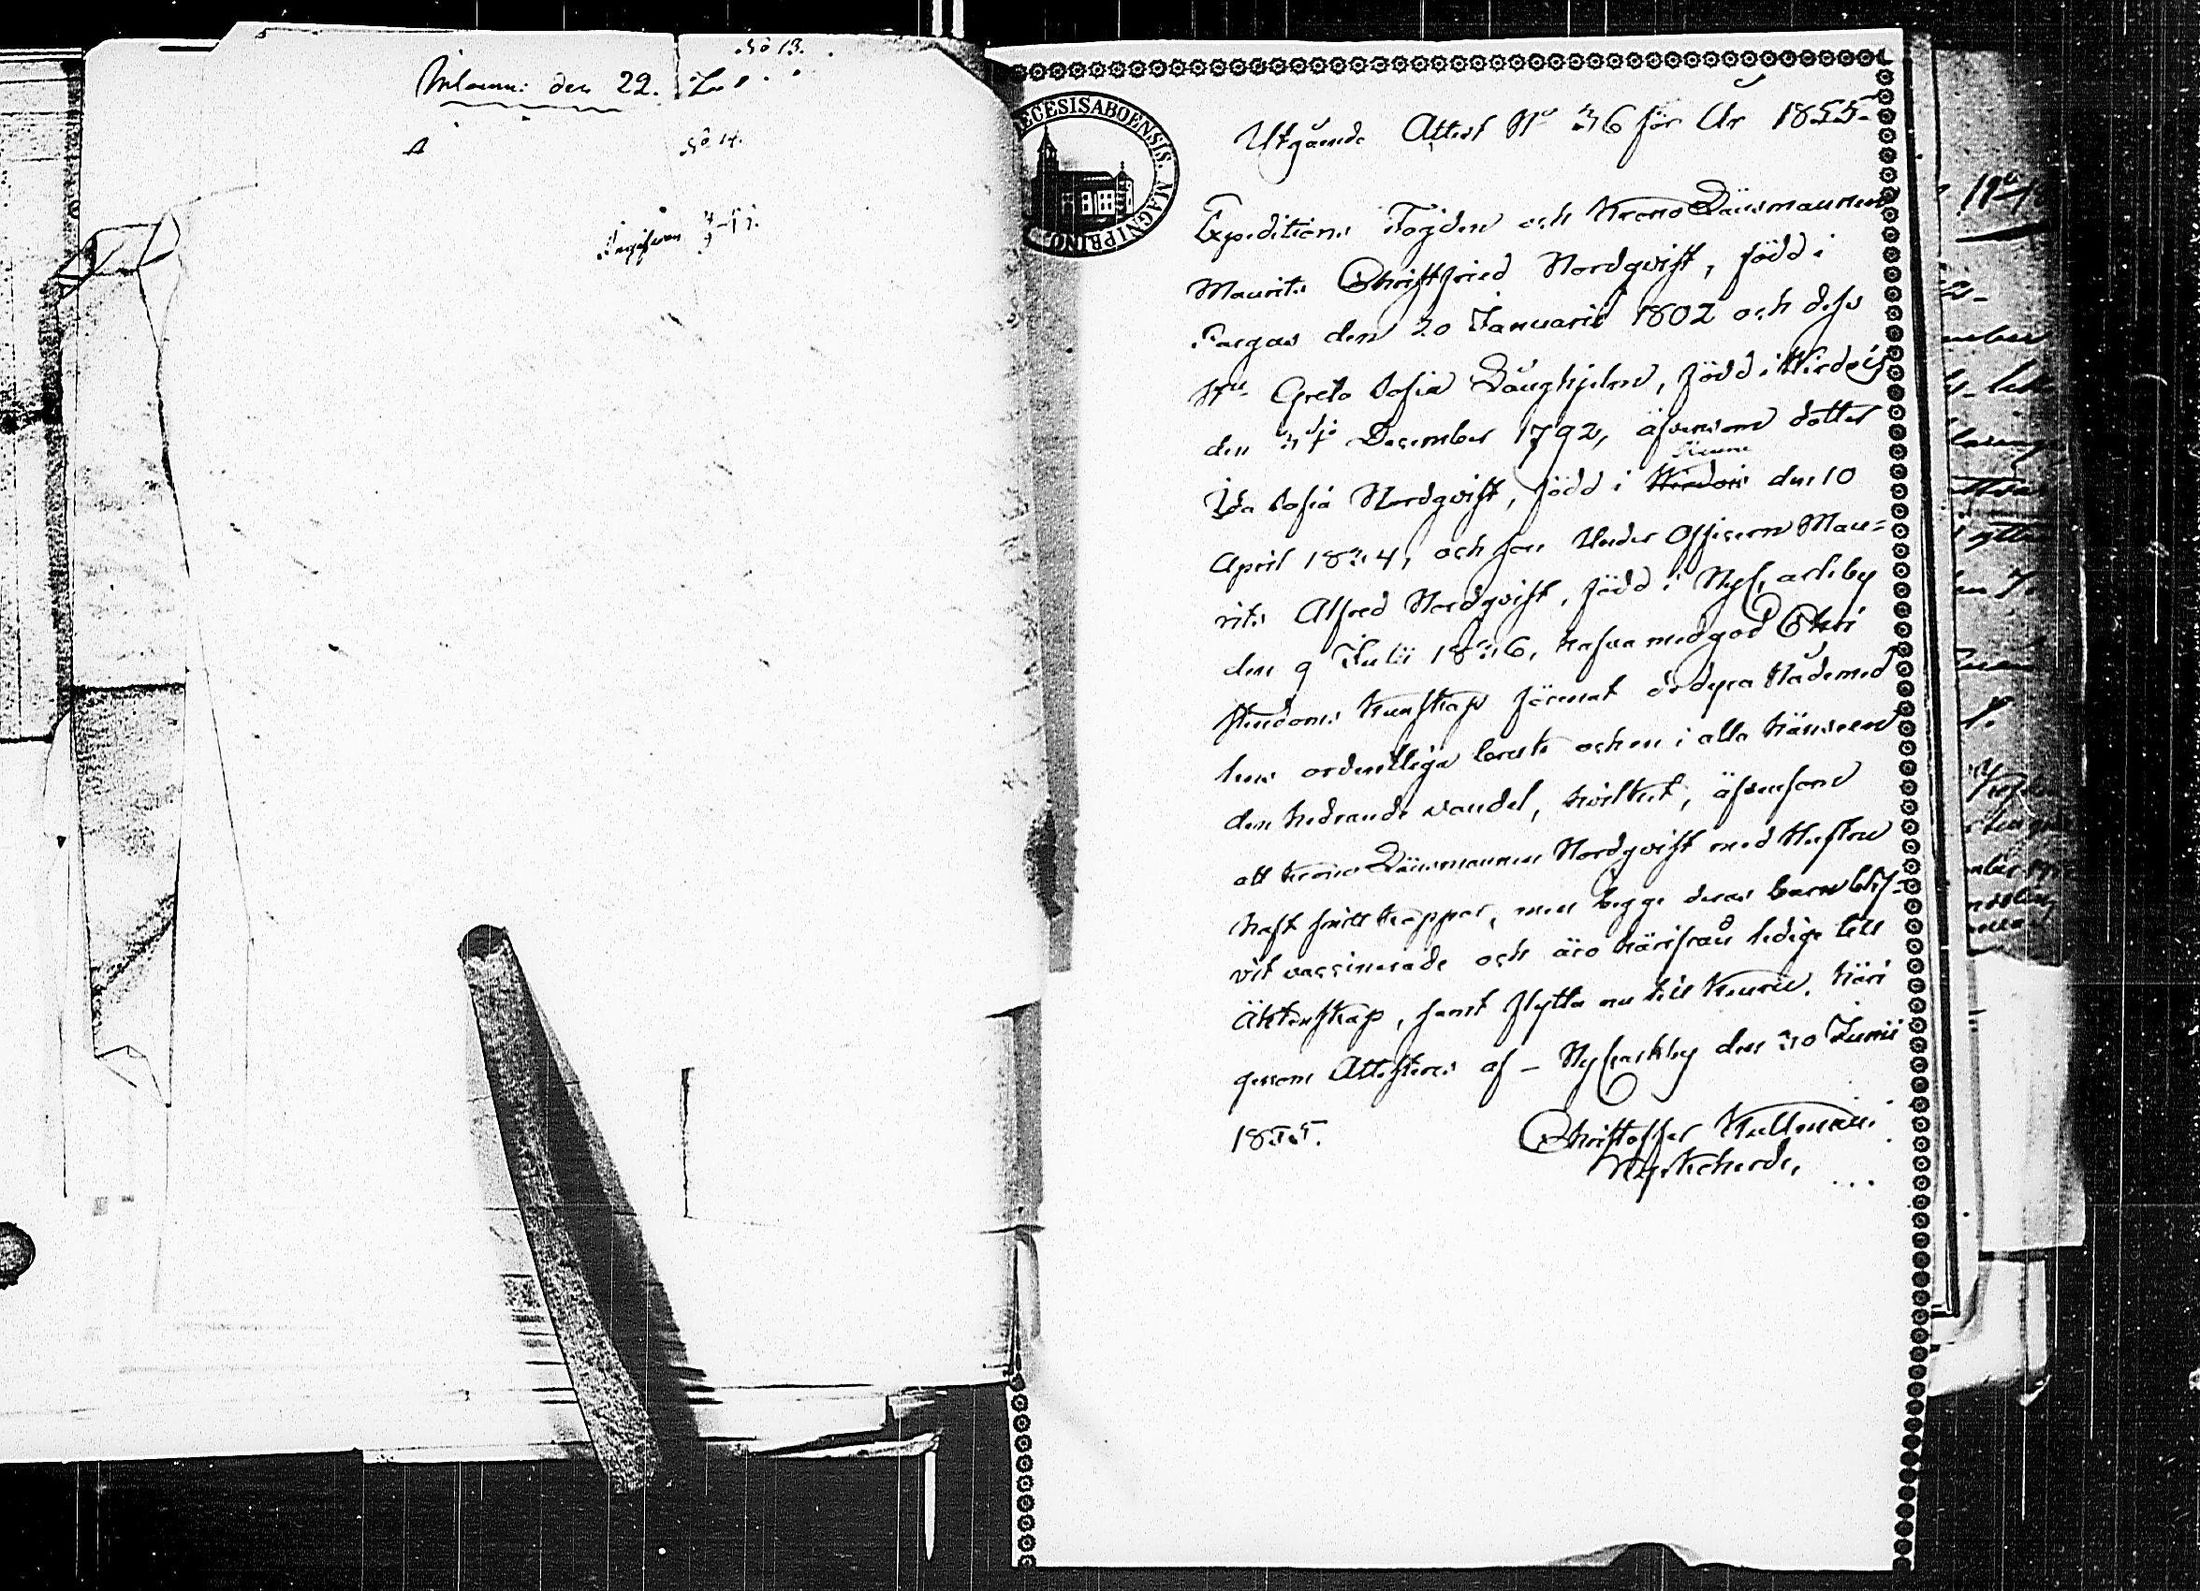 No 13.
Inkom: den 22.
No 14.
DIOECESIS ABOENSIS. MAGNI PRINC.
Utgående Attest No 36 för År 1855.
Expeditions Fogden och Krono Länsmannen
Maurits Christfried Nordqvist, född i
Pargas den 20 Januarii 1802 och dess
Hu Greta Sofia Långhjelm, född i Wirdois
den 31 December 1792, äfvensom dotter
Kiuru
Ida Sofia Nordqvist, född i Wirdois den 10
April 1834, och son Under Officern Mau=
rits Alfred Nordqvist, född i NyCarleby
den 9 Julii 1836, hafva med god Chri
stendoms kunskap förenat de dyra Nådemed
lens ordentliga bruk och en i alla hänseen
den hedrande vandel, hvilket, äfvensom
att Krono Länsmannen Nordqvist med Hustru
haft smittkoppor, men begge deras barn blif-
vit vaccinerade och äro härifrån lediga till
Äktenskap, samt flytta nu till Kiuru, häri
genom Attesteras af – NyCarleby den 30 Junii
1855.
Christoffer
Kyrkoherde.